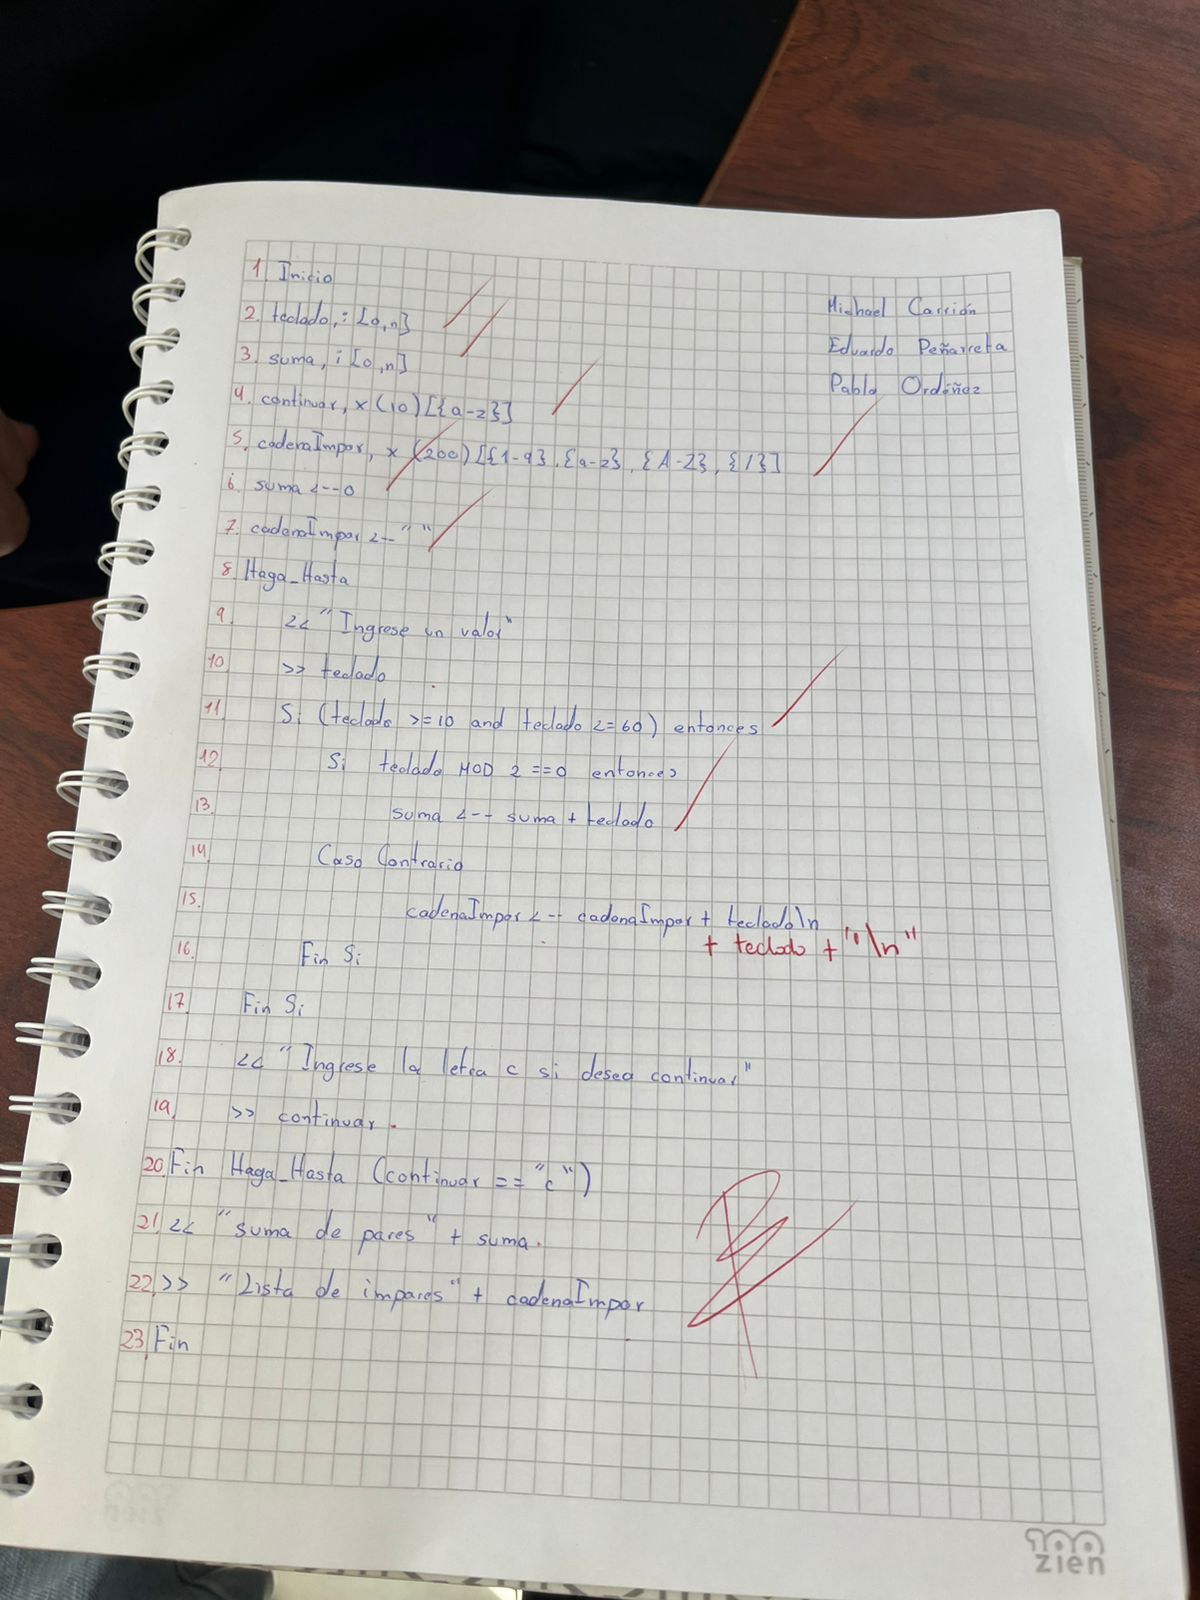 1. Inicio
Michael Carrión
2. teclado, i [0,n]
Eduardo Peñarreta
3. suma, i [0,n]
Pablo Ordóñez
4. continuar, x (10) [{a-z}]
5. cadenaImpar, x (200) [{1-9}, {a-z}, {A-Z}, {/}]
6. suma <--0
7. cadenaImpar <-- " "
8. Haga_Hasta
9. << "Ingrese un valor"
10. >> teclado
11. Si (teclado >=10 and teclado <=60) entonces
12. Si teclado MOD 2 ==0 entonces
13. suma <-- suma + teclado
14. Caso Contrario
15. cadenaImpar <-- cadenaImpar + teclado\n
+ teclado + "\n"
16. Fin Si
17. Fin Si
18. << "Ingrese la letra c si desea continuar"
19. >> continuar
20. Fin Haga_Hasta (continuar == "c")
21. << "suma de pares" + suma
22. >> "Lista de impares" + cadenaImpar
23. Fin
100
zien